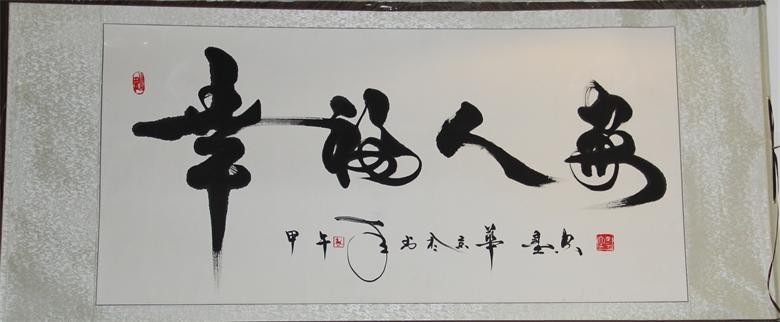 幸福人家
甲午 书於京華